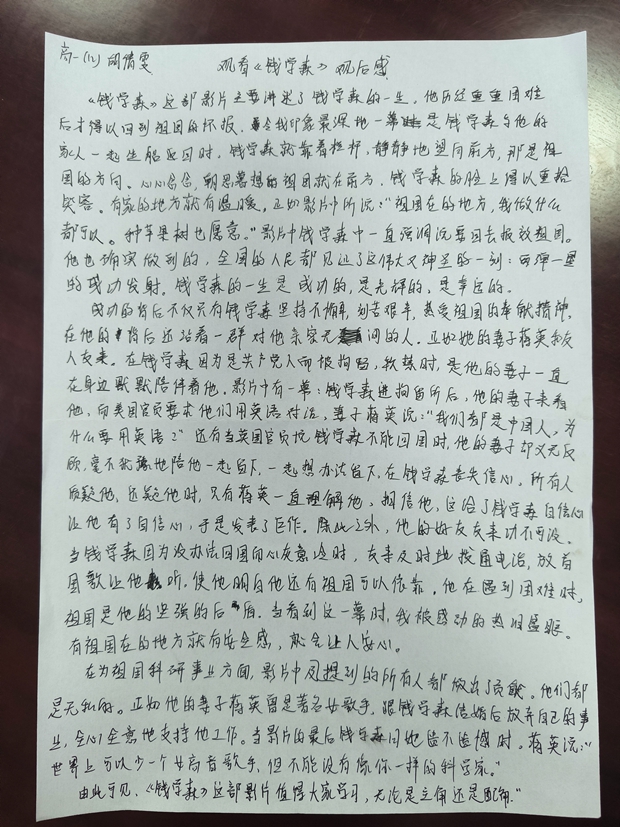 高一(12) 胡倩雯 观看《钱学森》观后感
《钱学森》这部影片主要讲述了钱学森的一生，他历经重重困难
后才得以回到祖国的怀报。令我印象最深地一幕是钱学森与他的
家人一起坐船返回时，钱学森就靠着栏杆，静静地望向前方，那是祖
国的方向。心心念念，朝思暮想的祖国就在前方，钱学森的脸上得以重拾
笑容。有家的地方就有温暖，正如影片中所说："祖国在的地方，我做什么
都可以。种苹果树也愿意。"影片中钱学森中一直强调说要回去报效祖国。
他也确实做到的，全国的人民都见证了这伟大又神圣的一刻：两弹一星
的成功发射。钱学森的一生是成功的，是光辉的，是幸运的。
成功的背后不仅只有钱学森坚持不懈，刻苦艰辛，热爱祖国的奉献精神，
在他的背后还站着一群对他亲密无间的人。正如她的妻子蒋英和友
人友来。在钱学森因为是共产党人而被拘留，软禁时，是他的妻子一直
在身边默默陪伴着他。影片中有一幕：钱学森进拘留所后，他的妻子来看
他，向美国官员要求他们用英语对话，妻子蒋英说："我们都是中国人，为
什么要用英语？"还有当美国官员说钱学森不能回国时，他的妻子却义无反
顾，毫不犹豫地陪他一起留下，一起想办法留下，在钱学森丧失信心。所有人
质疑他，迟疑他时，只有蒋英一直理解他，相信他，这给了钱学森自信心
让他有了自信心，于是发表了巨作。除此之外，他的好友友来功不可没。
当钱学森因为没办法回国而心灰意冷时，友来及时地拨通电话，放着
国歌让他听。使他明白他还有祖国可以依靠，他在遇到困难时，
祖国是他的坚强的后盾。当看到这一幕时，我被感动的热泪盈眶。
有祖国在的地方就有安全感，就会让人安心。
在为祖国科研事业方面，影片中提到的所有人都做出了贡献。他们都
是无私的。正如他的妻子蒋英曾是著名女歌手，跟钱学森结婚后放弃自己的事
业，全心全意地支持他工作。当影片的最后钱学森问她遗不遗憾时。蒋英说："
世界上可以少一个女高音歌手，但不能没有像你一样的科学家。"
由此可见，《钱学森》这部影片值得大家学习，无论是主角还是配角。"